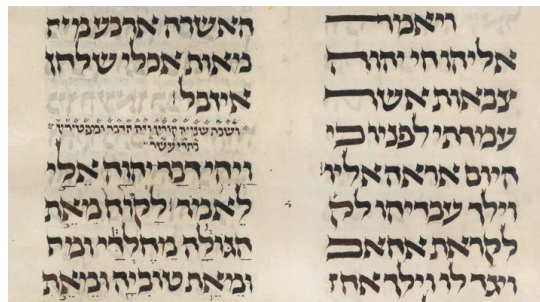 ויאמר
אליהו חי יהוה
צבאות אשר
עמדתי לפניו כי
היום אראה אליו
וילך עבדיהו לק
לקראת אחאב
ויגד לו וילך
האשרה ארבע מית
מאות אכלי שלחן
איזבל
ושבת שנייה קורין הדבר ומפטירין
בתרי עשר
וַיְהִי דְבַר יְהוָה אֵלַי
לֵאמֹר לָקוֹחַ מֵאֵת
הַגּוֹלָה מֵחֶלְדַּי ומת
וּמֵאֵת טוֹבִיָּה וּמֵאֵת